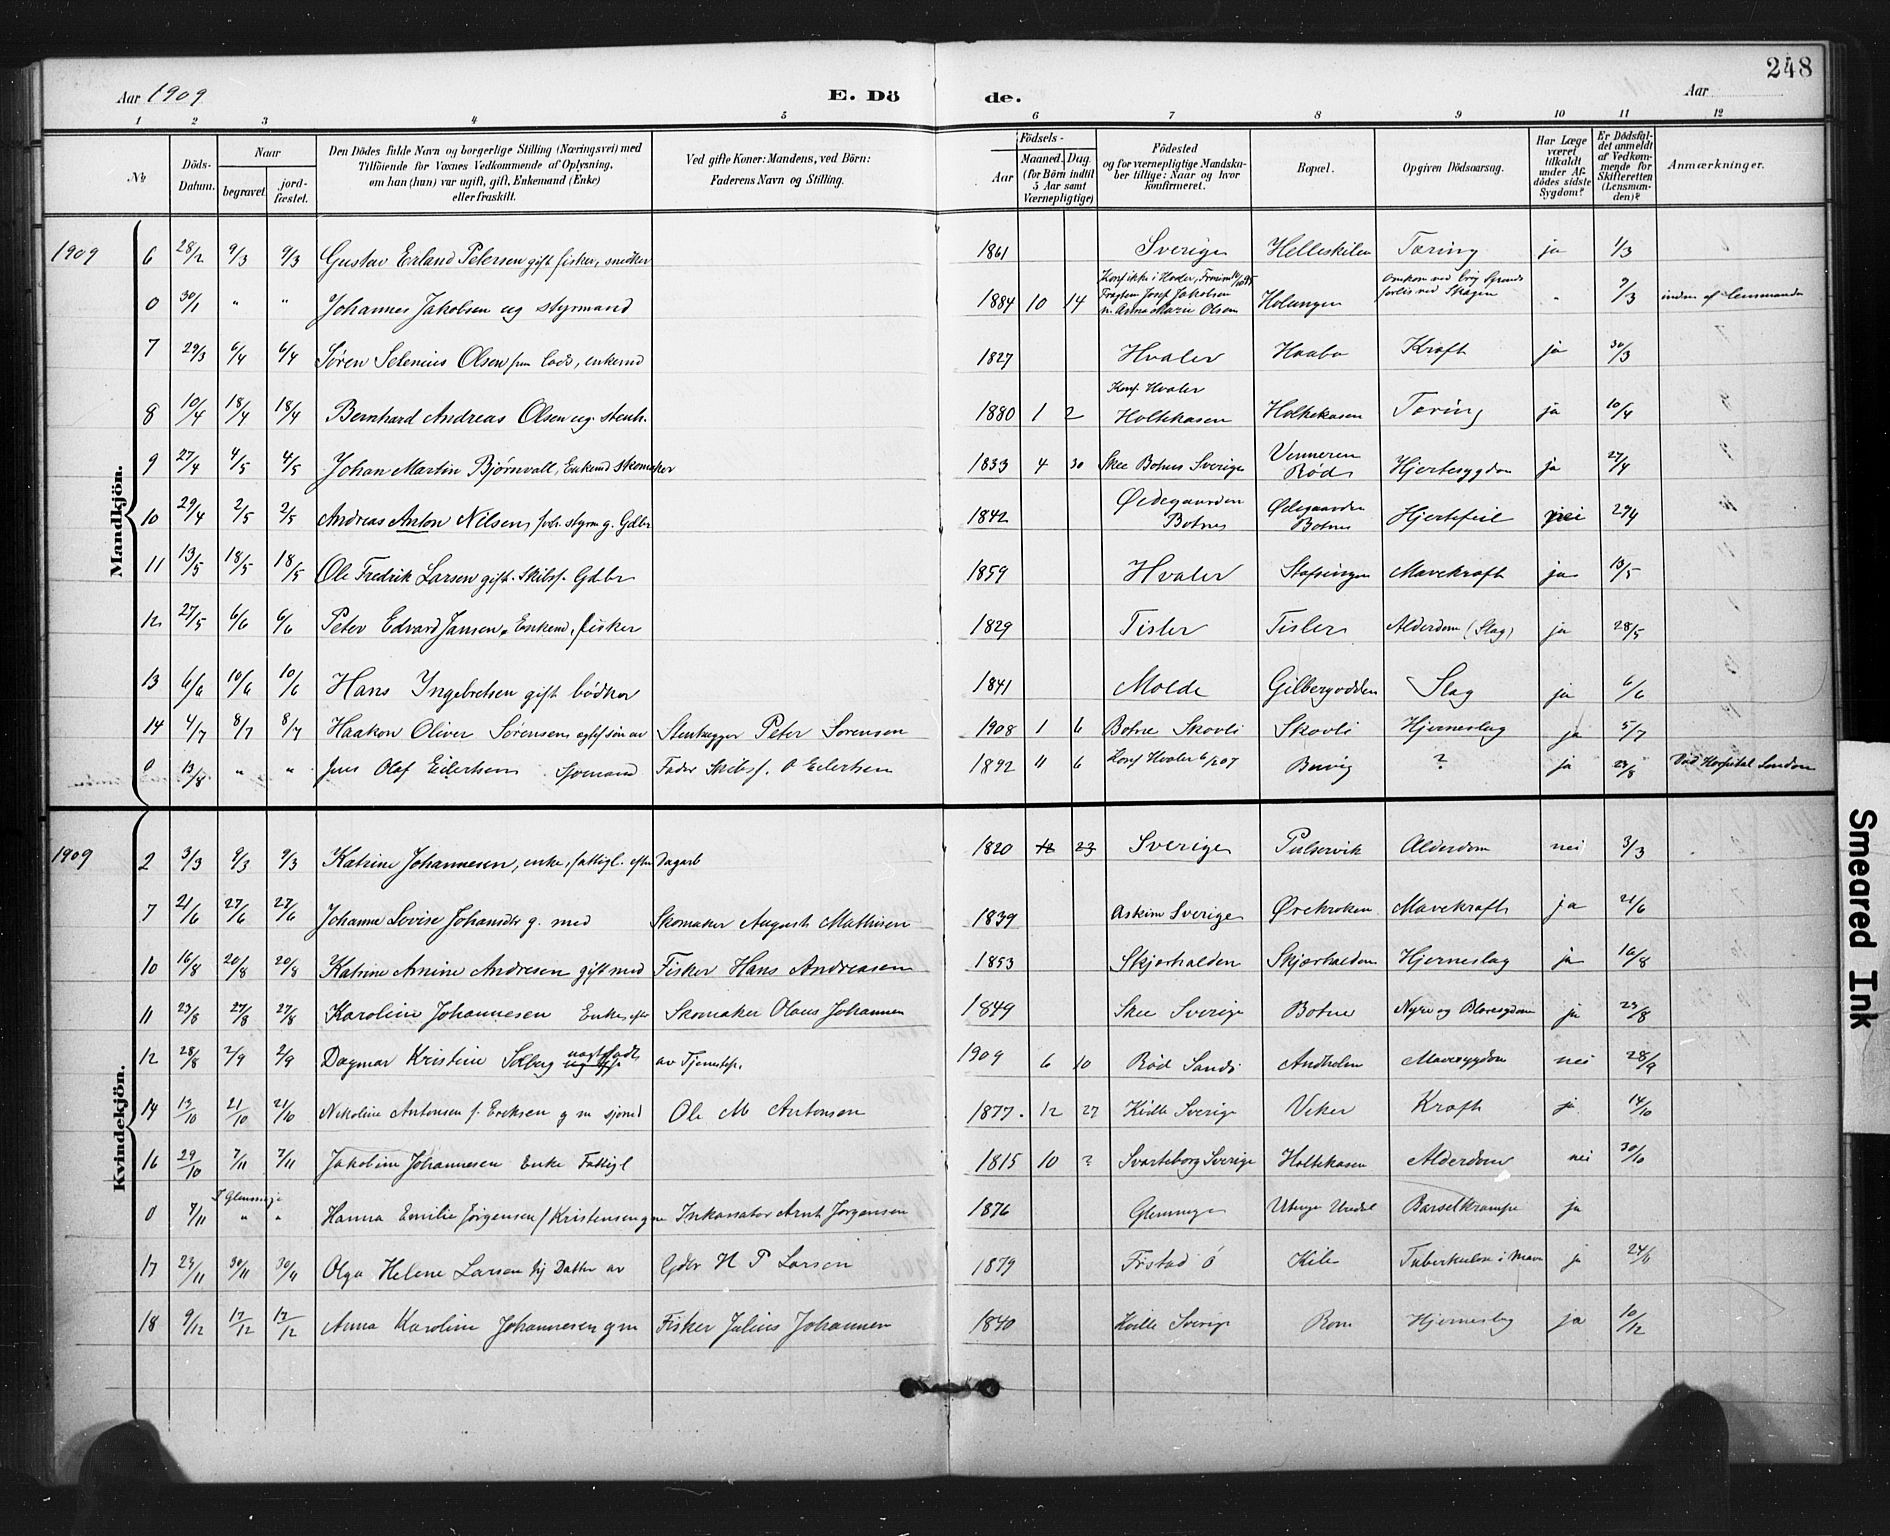 248
Aar 1909 E. Dö de. Aar
1 2 3 4 5 6 7 8 9 10 11 12
№ Döds-Datum. Naar begravet. jord-fæstet. Den Dödes fulde Navn og borgerlige Stilling (Næringsvei) med Tilföiende for Voxnes Vedkommende af Oplysning, om han (hun) var ugift, gift, Enkemand (Enke) eller fraskilt. Ved gifte Koner: Mandens, ved Börn: Faderens Navn og Stilling. Födsels- Aar Maaned. Dag. (for Börn indtil 5 Aar samt Værnepligtige) Födested og for værnepligtige Mandskaber tillige: Naar og hvor konfirmeret. Bopæl. Opgiven Dödsaarsag. Har Læge været tilkaldt under Afdödes sidste Sygdom? Er Dödsfaldet anmeldt af Vedkommende for Skifteretten (Lensmanden)? Anmærkninger.
Mandkjön.
1909 6 28/2 9/3 9/3 Gustav Erland Petersen gift fisker, snedker 1861 Sverige Helleskilen Tæring ja 1/3
0 30/1 " " Johannes Jakobsen ug styrmand 1884 10 14 Josef Jakobsen Anna Marie Olsen Holungen forlis ved Skagen " 9/3 indm af lensmanden
7 29/3 6/4 6/4 Søren Selenius Olsen lods, enkemd 1827 Hvaler Haabo Kræft ja 30/3
8 10/4 18/4 18/4 Bernhard Andreas Olsen ug. stenh. 1880 1 2 Konf. Hvaler Holtekasen Holtekasen Tæring ja 10/4
9 27/4 4/5 4/5 Johan Martin Bjørnvall, Enkemd skomaker 1833 4 30 Skee Bohus Sverige Venneren Rød Hjertesygdom ja 27/4
10 29/4 2/5 2/5 Andreas Anton Nilsen, styrm g. Gdbr 1842 Ødegaarden Botnes Ødegaarden Botnes Hjertefeil nei 29/4
11 13/5 18/5 18/5 Ole Fredrik Larsen gift. Skibsf. Gdbr 1859 Hvaler Stafsengen Mavekræft ja 13/5
12 27/5 6/6 6/6 Peter Edvard Jansen, Enkemd, fisker 1829 Tisler Tisler Alderdom (Slag) ja 28/5
13 6/6 10/6 10/6 Hans Ingebretsen gift bødker 1841 Molde Gilbergodden Slag ja 6/6
14 4/7 8/7 8/7 Haakon Oliver Sørensen ægtef søn av Stenhugger Peter Sørensen 1908 1 6 Botne Skovli Skovli Hjerneslag ja 5/7
0 13/8 " " Jens Olaf Eilertsen Sjømand Fader Skibsf. O Eilertsen 1892 11 6 Konf Hvaler 6/1 07 Bervig ? ja 23/8 Død Hospital London
Kvindekjön.
1909 2 3/3 9/3 9/3 Katrine Johannesen, enke, fattigl. efter Dagarb 1820 12 23 Sverige Pulservik Alderdom nei 3/3
7 21/6 27/6 27/6 Johanna Lovise Johansdtr g. med Skomaker August Mathisen 1839 Askim Sverige Ørekroken Mavekræft ja 21/6
10 16/8 20/8 20/8 Katrine Amine Andresen gift med Fisker Hans Andreasen 1853 Skjærhalden Skjærhalden Hjerneslag ja 16/8
11 23/8 27/8 27/8 Karoline Johannesen Enke efter Skomaker Olaus Johannesen 1849 Skee Sverige Botne Nyre og Blæresygdom ja 23/8
12 28/8 2/9 2/9 Dagmar Kristine Solberg uægtefødt av Tjenestep. 1909 6 10 Rød Sandø Andholm Mavesygdom nei 28/9
14 13/10 21/10 21/10 Nikoline Antonsen f. Eriksen g m sjømd Ole M Antonsen 1877. 12 27 Kville Sverige Viker Kræft ja 14/10
16 29/10 7/11 7/11 Jakobine Johannesen Enke Fattigl 1815 10 ? Svarteborg Sverige Holtekasen Alderdom nei 30/10
0 7/11 I Glemminge " " Hanna Emilie Jørgensen f Kristensen g m Inkassator Arnt Jørgensen 1876 Glemminge Urdal Barselkrampe ja
17 23/11 30/11 30/11 Olga Helene Larsen Datter av Gdbr H P Larsen 1879 Fr.stad Ø Kile Tuberkulose i Mave ja 24/11
18 9/12 17/12 17/12 Anna Karoline Johannesen g m Fisker Julius Johannesen 1840 Kville Sverige Rom Hjerneslag ja 10/12
Smeared Ink